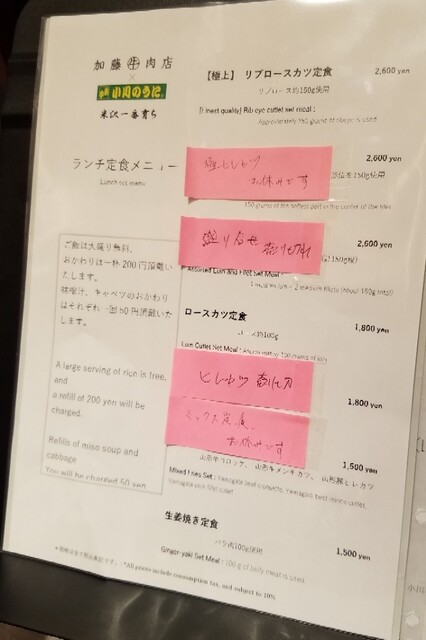 加藤牛肉店
×
小川のうに
米沢一番育ち
ランチ定食メニュー
Lunch set menu
ご飯は大盛り無料、
おかわりは一杯200円頂戴い
たします。
味噌汁、キャベツのおかわり
はそれぞれ一回50円頂戴いた
します。
A large serving of rice is free,
and
a refill of 200 yen will be
charged.
Refills of miso soup and
cabbage
You will be charged 50 yen
【極上】 リブロースカツ定食 2,600 yen
リブロース約150g使用
[Finest quality] Rib eye cutlet set meal :
Approximately 150 grams of ribeye is used.
2,600 yen
極ヒレカツ
お休みです
部位を150g使用
150 grams of the softest part in the center of the fillet
2,600 yen
盛り合せ 売り切れ
Assorted Loin and Fillet Set Meal :
ロースカツ定食 1,800 yen
ロース約100g
Loin Cutlet Set Meal : Approximately 100 grams of loin
ヒレカツ 売切
1,800 yen
ミックス定食、
お休みです
1,500 yen
山形牛コロッケ、 山形牛メンチカツ、 山形豚ヒレカツ
Mixed Fries Set :
生姜焼き定食
バラ肉100g使用 1,500 yen
Ginger-yaki Set Meal : 100 g of belly meat is used.
*All prices include consumption tax, and subject to 10%